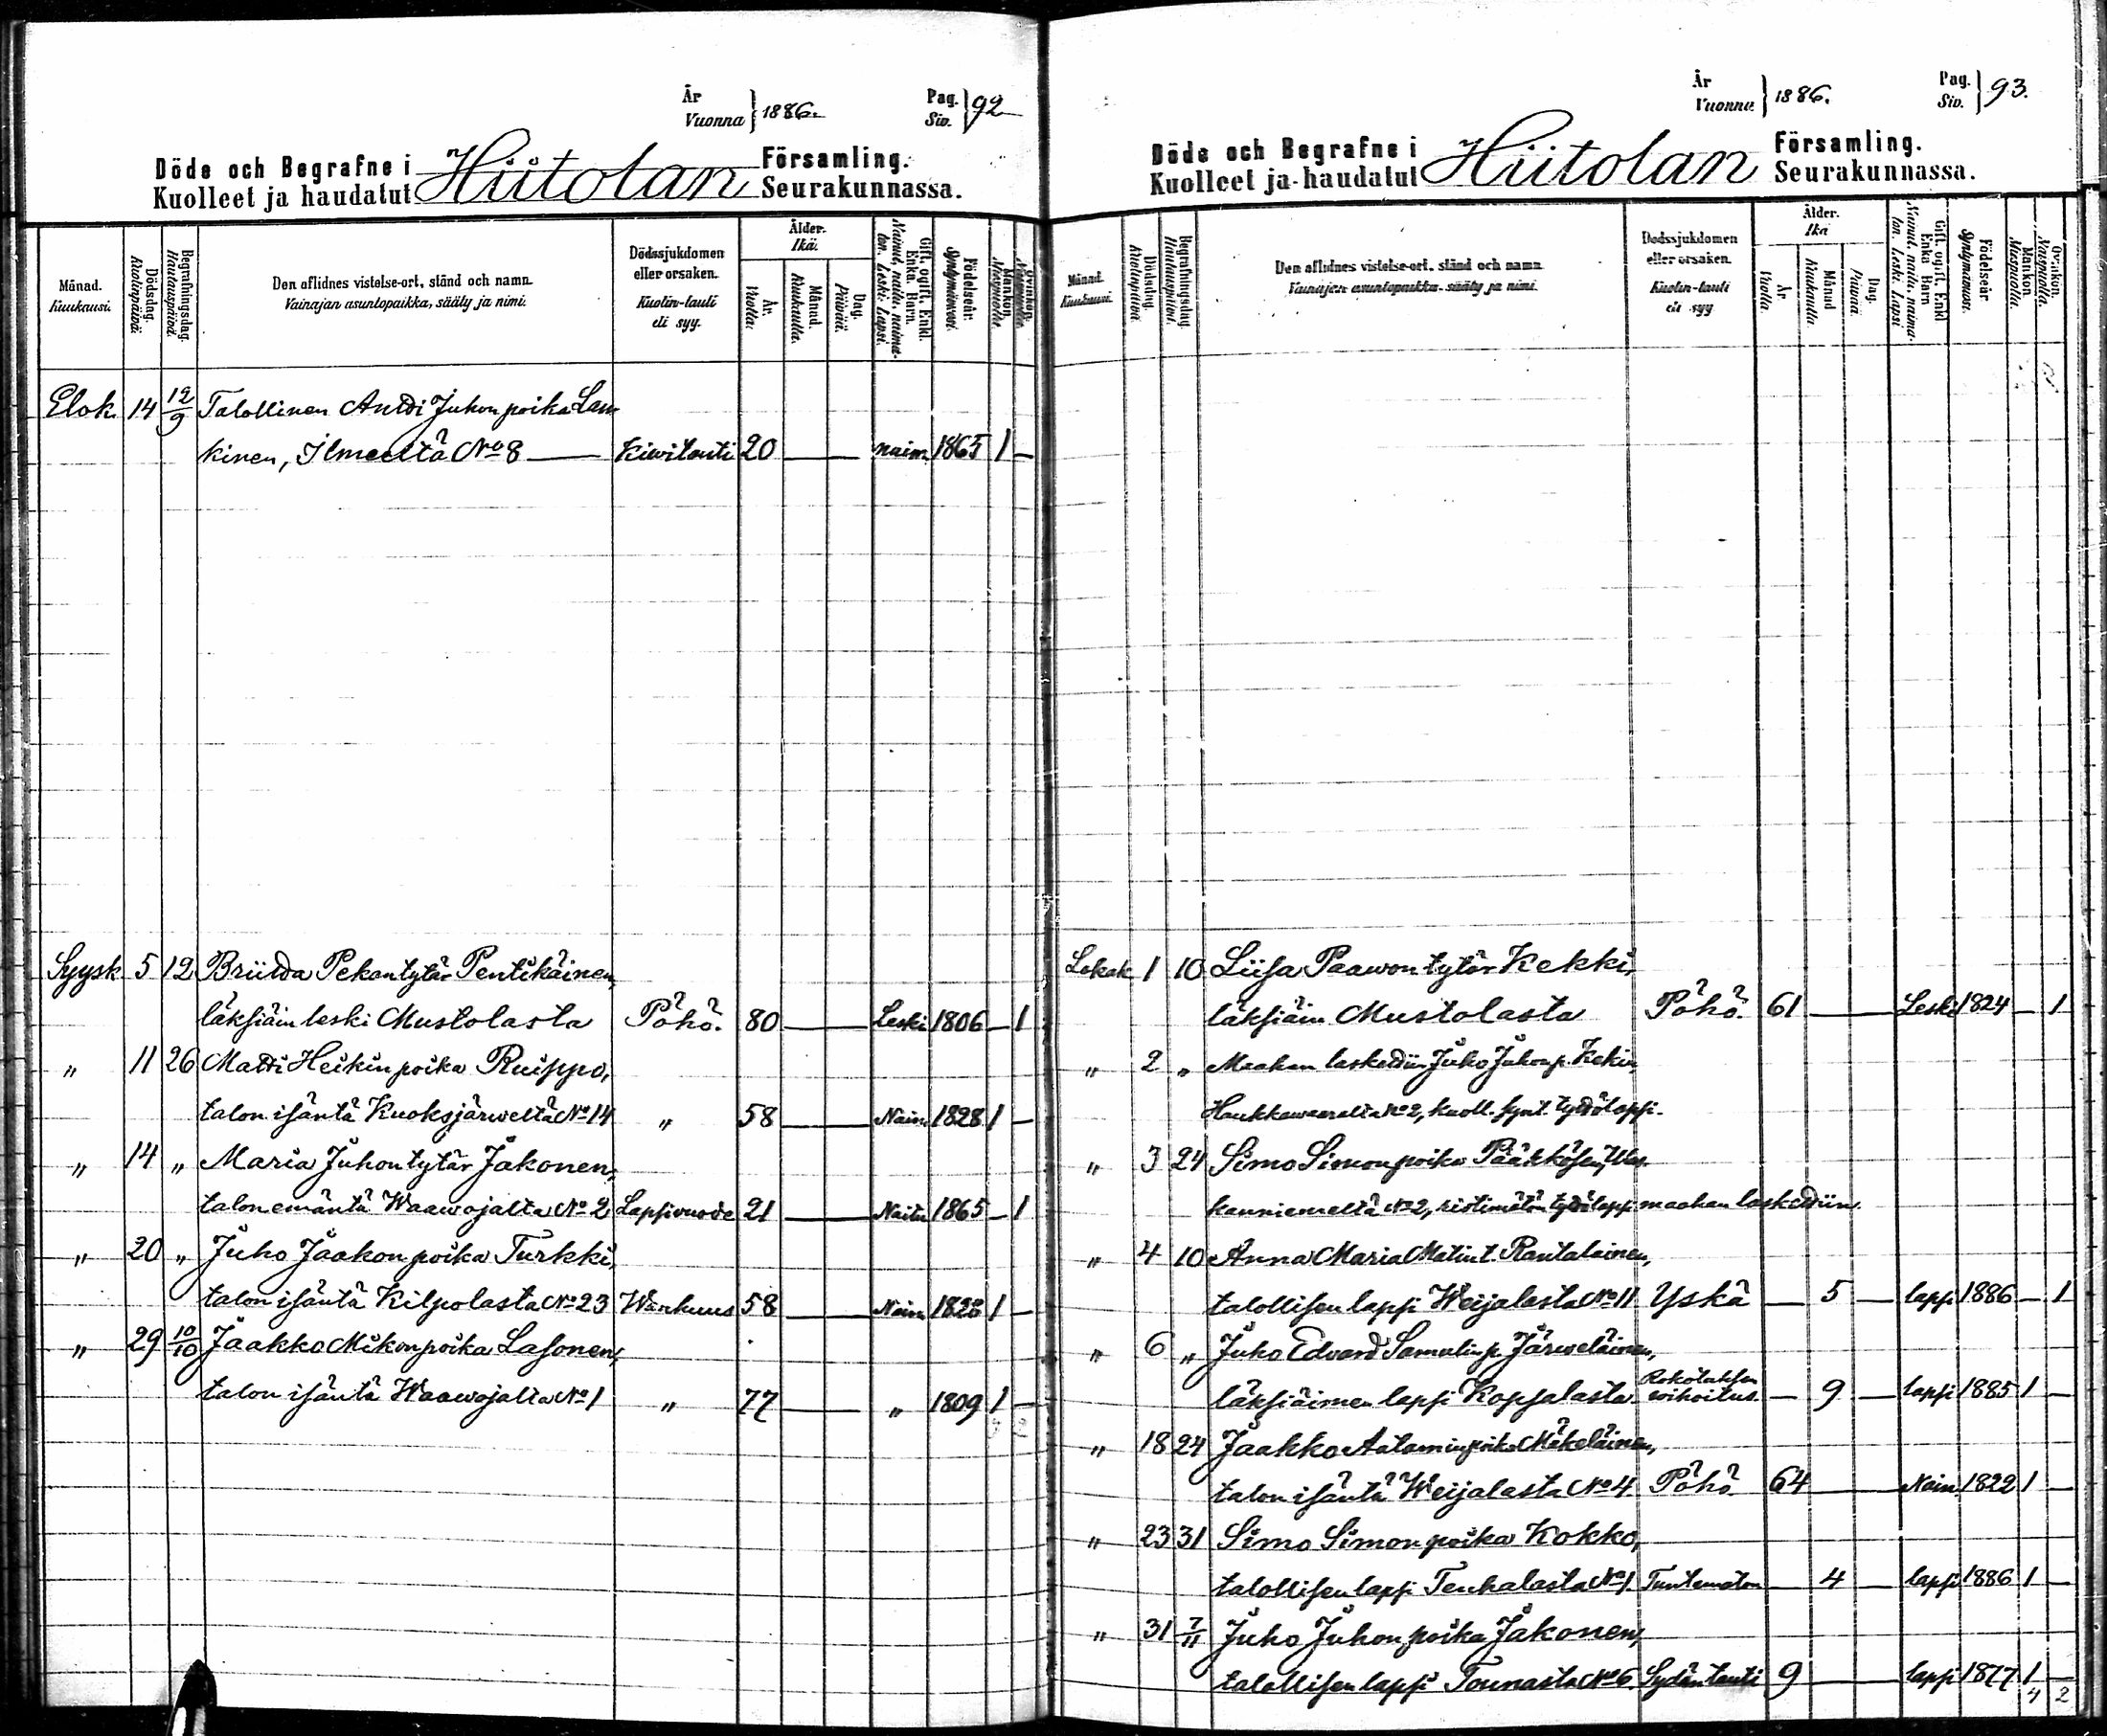 År
Vuonna } 1886.
Pag.
Siv. } 92
Döde och Begrafne i Hiitolan Församling.
Kuolleet ja haudatut Seurakunnassa.
Månad. Kuukausi.
Dödsdag. Kuolinpäivä.
Begrafningsdag. Hautauspäivä.
Den aflidnes vistelse-ort, stånd och namn.
Vainajan asuntopaikka, sääty ja nimi.
Dödssjukdomen eller orsaken.
Kuolin-tauti eli syy.
Ålder. Ikä.
År. Vuotta.
Månad. Kuukautta.
Dag. Päivää.
Gift, ogift, Enkl. Enka. Barn.
Nainut, naitu, naima-ton. Leski. Lapsi.
Födelseår. Syntymävuosi.
Mankön. Miespuolta.
Qvinkön. Naispuolta.
Elok. 14 12/9 Talollinen Antti Juhon poika Lan-
kinen, Ilmeeltä No 8 Kiwitauti 20 naim. 1865 1 —
Syysk 5 12 Briitta Pekantytär Pentikäinen,
läksiäin leski Mustolasta Pöhö. 80 Leski 1806 — 1
" 11 26 Matti Heikin poika Ruippo,
talon isäntä Kuoksjärweltä No 14 " 58 Nain. 1828 1 —
" 14 " Maria Juhontytär Jakonen,
talon emäntä Waawojalta No 2 Lapsivuode 21 Naitu 1865 — 1
" 20 " Juho Jaakon poika Turkki,
talon isäntä Kilpolasta No 23 Wanhuus 58 Nain 1828 1 —
" 29 10/10 Jaakko Mikonpoika Lasonen,
talon isäntä Waawojalta No 1 " 77 " 1809 1 —
År
Vuonna } 1886.
Pag.
Siv. } 93.
Döde och Begrafne i Hiitolan Församling.
Kuolleet ja haudatut Seurakunnassa.
Månad. Kuukausi.
Dödsdag. Kuolinpäivä.
Begrafningsdag. Hautauspäivä.
Den aflidnes vistelse-ort, stånd och namn.
Vainajan asuntopaikka, sääty ja nimi.
Dödssjukdomen eller orsaken.
Kuolin-tauti eli syy
Ålder. Ikä
År. Vuotta.
Månad Kuukautta.
Dag. Päivää.
Gift, ogift, Enkl Enka Barn
Nainut, naitu, naima-ton. Leski. Lapsi
Födelseår. Syntymävuosi.
Mankön. Miespuolta.
Qvinkön. Naispuolta.
Lokak 1 10 Liisa Paawon tytär Kekki,
läksiäin Mustolasta Pöhö. 61 Leski 1824 — 1
" 2 " Maahan laskettiin Juho Juhonp. Kekin,
Haukkawaaralta No 2, kuoll. synt. tyttölapsi.
" 3 24 Simo Simonpoika Pääkkösen,
kanniemeltä No 2, ristimätön tyttölapsi maahan laskettiin.
" 4 10 Anna Maria Matint. Rantalainen,
talollisen lapsi Weijalasta No 11 Yskä — 5 — lapsi 1886 — 1
" 6 " Juho Edvard Samulinp. Järweläinen,
läksiäimen lapsi Kopsalasta Rokotuksen wihoitus. — 9 — lapsi 1885 1 —
" 18 24 Jaakko Aataminpoika Mäkeläinen,
talon isäntä Weijalasta No 4. Pöhö 64 Nain. 1822 1 —
" 23 31 Simo Simonpoika Kokko,
talollisen lapsi Tenkalasta No 1. Tuntematon 4 — lapsi 1886 1 —
" 31 7/11 Juho Juhon poika Jakonen,
talollisen lapsi Tounasta No 6. Sydäntauti 9 lapsi 1877 1 —
4 2